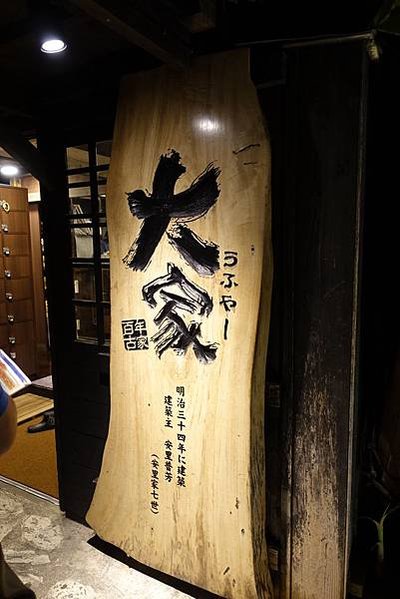 大家
うふやー
百年
古家
明治三十四年に建築
建築主 安里普芳
(安里家七世)